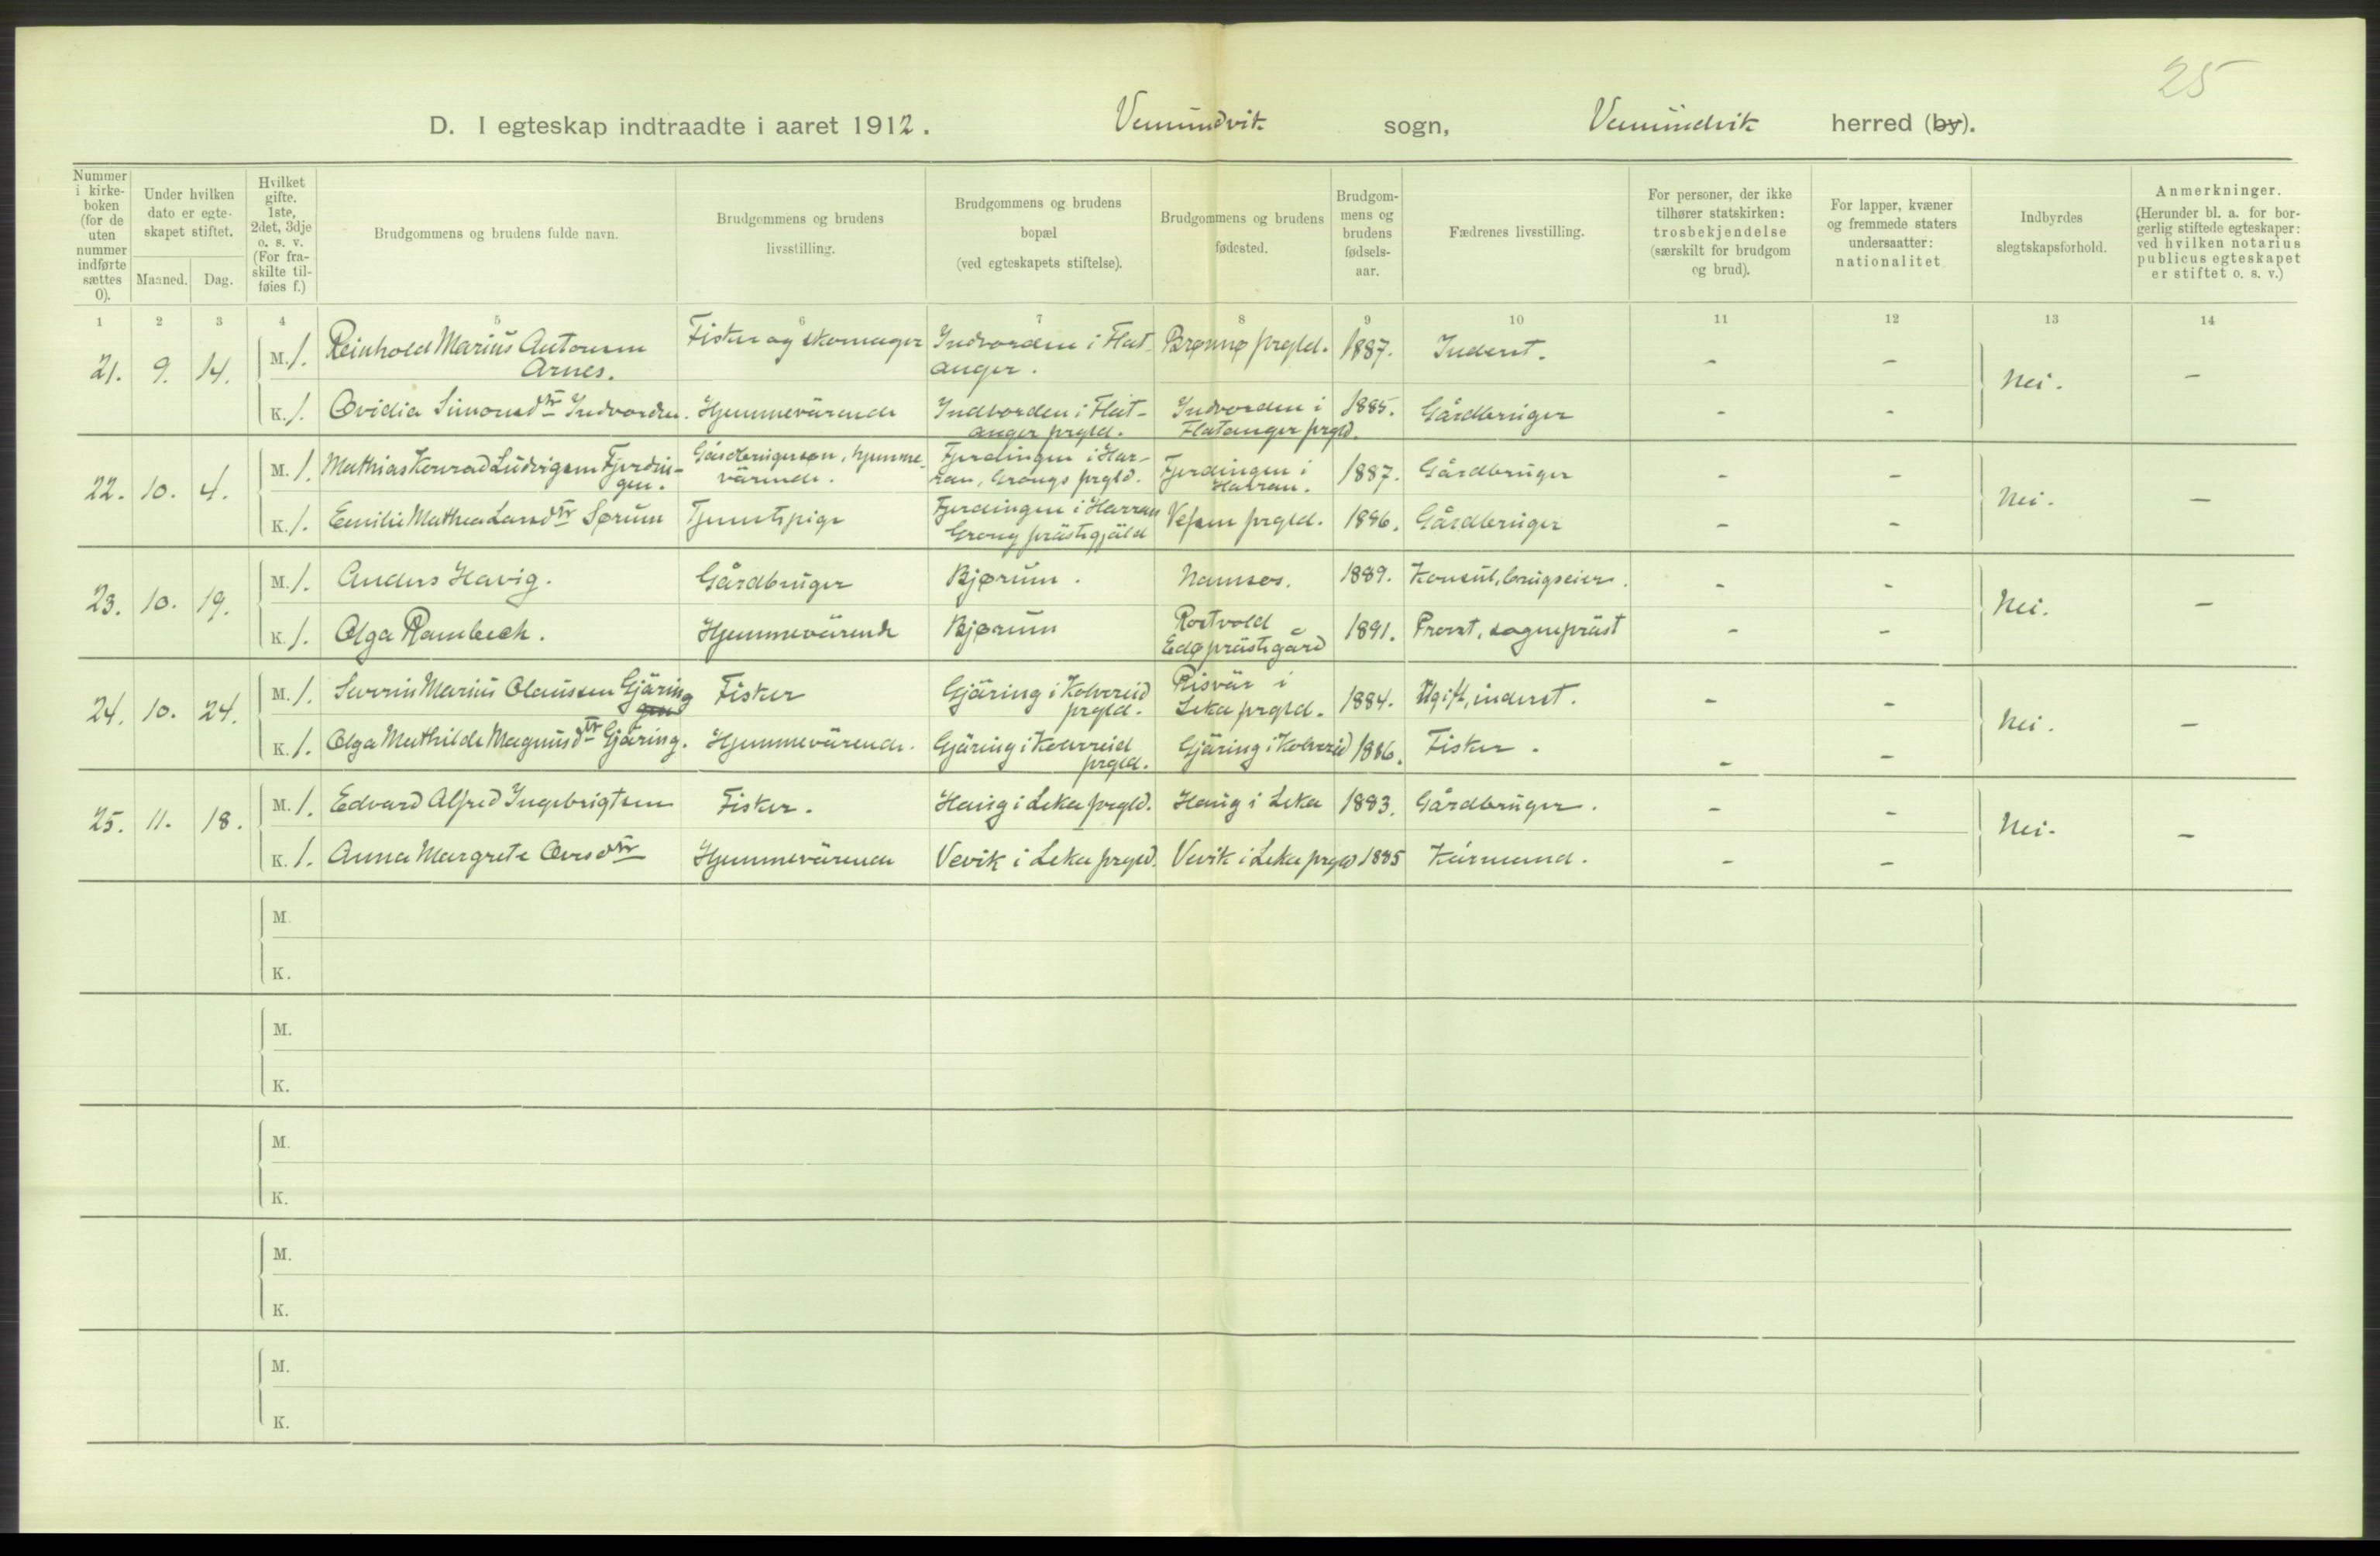 25
D. I egteskap indtraadte i aaret 1912. Vemundvik sogn, Vemundvik herred (by).
Nummer i kirke- boken (for de uten nummer indførte sættes 0).
Under hvilken dato er egte- skapet stiftet.
Maaned. Dag.
Hvilket gifte. 1ste, 2det, 3dje o. s. v. (For fra- skilte til- føies f.)
Brudgommens og brudens fulde navn.
Brudgommens og brudens livsstilling.
Brudgommens og brudens bopæl (ved egteskapets stiftelse).
Brudgommens og brudens fødested.
Brudgom- mens og brudens fødsels- aar.
Fædrenes livsstilling.
For personer, der ikke tilhører statskirken: trosbekjendelse (særskilt for brudgom og brud).
For lapper, kvæner og fremmede staters undersaatter: nationalitet.
Indbyrdes slegtskapsforhold.
Anmerkninger. (Herunder bl. a. for bor- gerlig stiftede egteskaper: ved hvilken notarius publicus egteskapet er stiftet o. s. v.)
1 2 3 4 5 6 7 8 9 10 11 12 13 14
21. 9. 14. M. 1. Reinhold Marius Antonsen Arnes. Fisker og skomager Indvorden i Flat- anger. Brønnø prgld. 1887. Inderst. - - Nei. -
K. 1. Ovidia Simonsdtr Indvorden. Hjemmeværende Indvorden i Flat- anger prgld. Indvorden i Flatanger prgld. 1885. Gårdbruger - -
22. 10. 4. M. 1. Mathias Konrad Ludvigsen Fjerdin- gen. Gårdbrugersøn, hjemme- værende. Fjerdingen i Har- ran, Grongs prgld. Fjerdingen i Harran. 1887. Gårdbruger - - Nei. -
K. 1. Emilie Mathea Larsdtr Sørum Tjenestpige Fjerdingen i Harran Grong præstegjæld Vefsen prgld. 1886. Gårdbruger - -
23. 10. 19. M. 1. Anders Havig. Gårdbruger Bjørum. Namsos. 1889. Konsul, brugseier. - - Nei. -
K. 1. Olga Rambech. Hjemmeværende Bjørum Rostvold Edø præstegård 1891. Provst, sognepræst - -
24. 10. 24. M. 1. Severin Marius Olaussen Gjäring gen Fisker Gjäring i Kolvereid prgld. Risvär i Leka prgld. 1884. Ugift, inderst. - - Nei. -
K. 1. Olga Mathilde Magnusdtr Gjäring. Hjemmeværende. Gjäring i Kolvereid prgld. Gjäring i Kolvereid 1886. Fisker. - -
25. 11. 18. M. 1. Edvard Alfred Ingebrigtsen Fisker. Haug i Leka prgld. Haug i Leka 1883. Gårdbruger. - - Nei. -
K. 1. Anna Margrete Oversdtr Hjemmeværende Vevik i Leka prgld. Vevik i Leka prgld 1885 Kårmand. - -
M.
K.
M.
K.
M.
K.
M.
K.
M.
K.